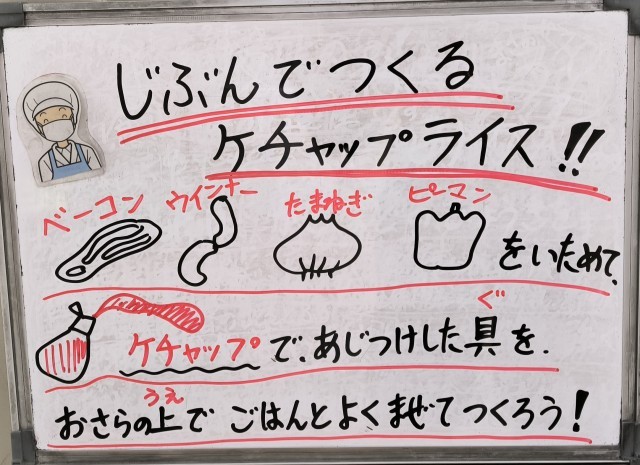 じぶんでつくる
ケチャップライス!!
ベーコン ウインナー たまねぎ ピーマン
をいためて、
ぐ
ケチャップで、あじつけした具を、
うえ
おさらの上で ごはんとよくまぜてつくろう!